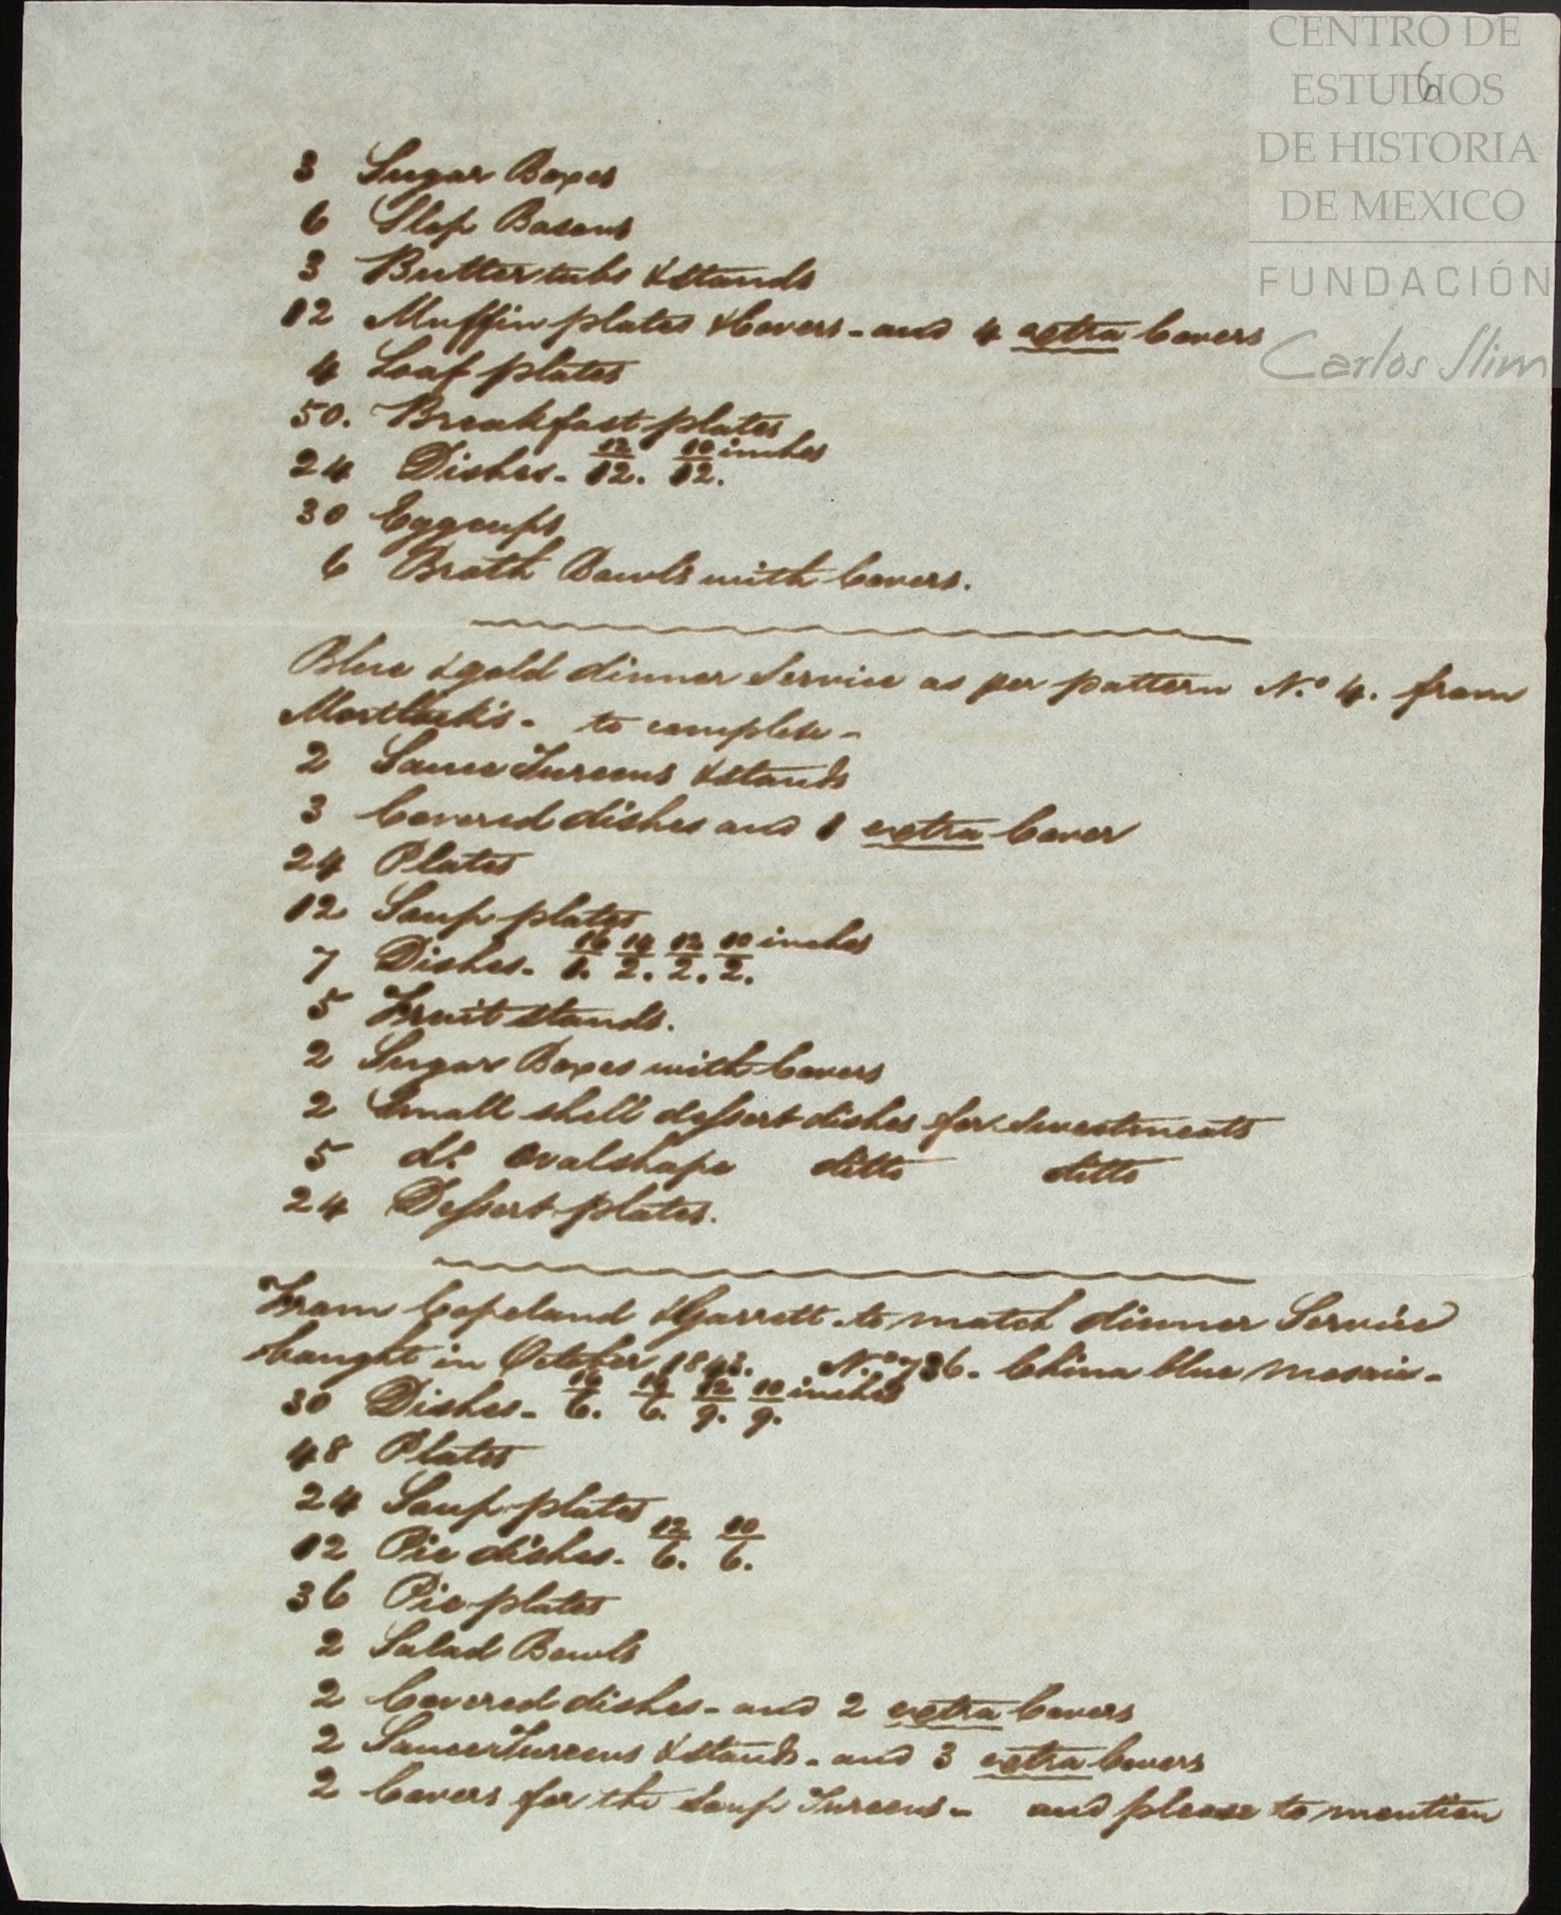 CENTRO DE
ESTUDIOS
DE HISTORIA
DE MEXICO
FUNDACIÓN
Carlos Slim
6
3 Sugar Boxes
6 Slop Basons
3 Butter tubs & stands
12 Muffin plates & Covers - and 4 extra Covers
4 Loaf plates
50. Breakfast plates
24 Dishes - 12/12. 10/12. inches
30 Eggcups
6 Broth Bowls with Covers.
Blue & gold dinner Service as per pattern N.o 4. from
Mortlock's - to complete -
2 Sauce Tureens & stands
3 Covered dishes and 1 extra Cover
24 Plates
12 Soup plates
7 Dishes - 16/1. 14/2. 12/2. 10/2. inches
5 Fruit stands.
2 Sugar Boxes with Covers
2 Small shell dessert dishes for Sweetmeats
5 do. oval shape ditto ditto
24 Dessert plates.
From Copeland & Garrett - to match dinner Service
bought in October 1843. N.o 736. China blue mosaic -
30 Dishes - 16/6. 14/6. 12/9. 10/9. inches
48 Plates
24 Soup plates
12 Pie dishes - 12/6. 10/6.
36 Pie plates
2 Salad Bowls
2 Covered dishes - and 2 extra Covers
2 Saucer Tureens & stands - and 3 extra Covers
2 Covers for the Soup Tureens - and please to mention